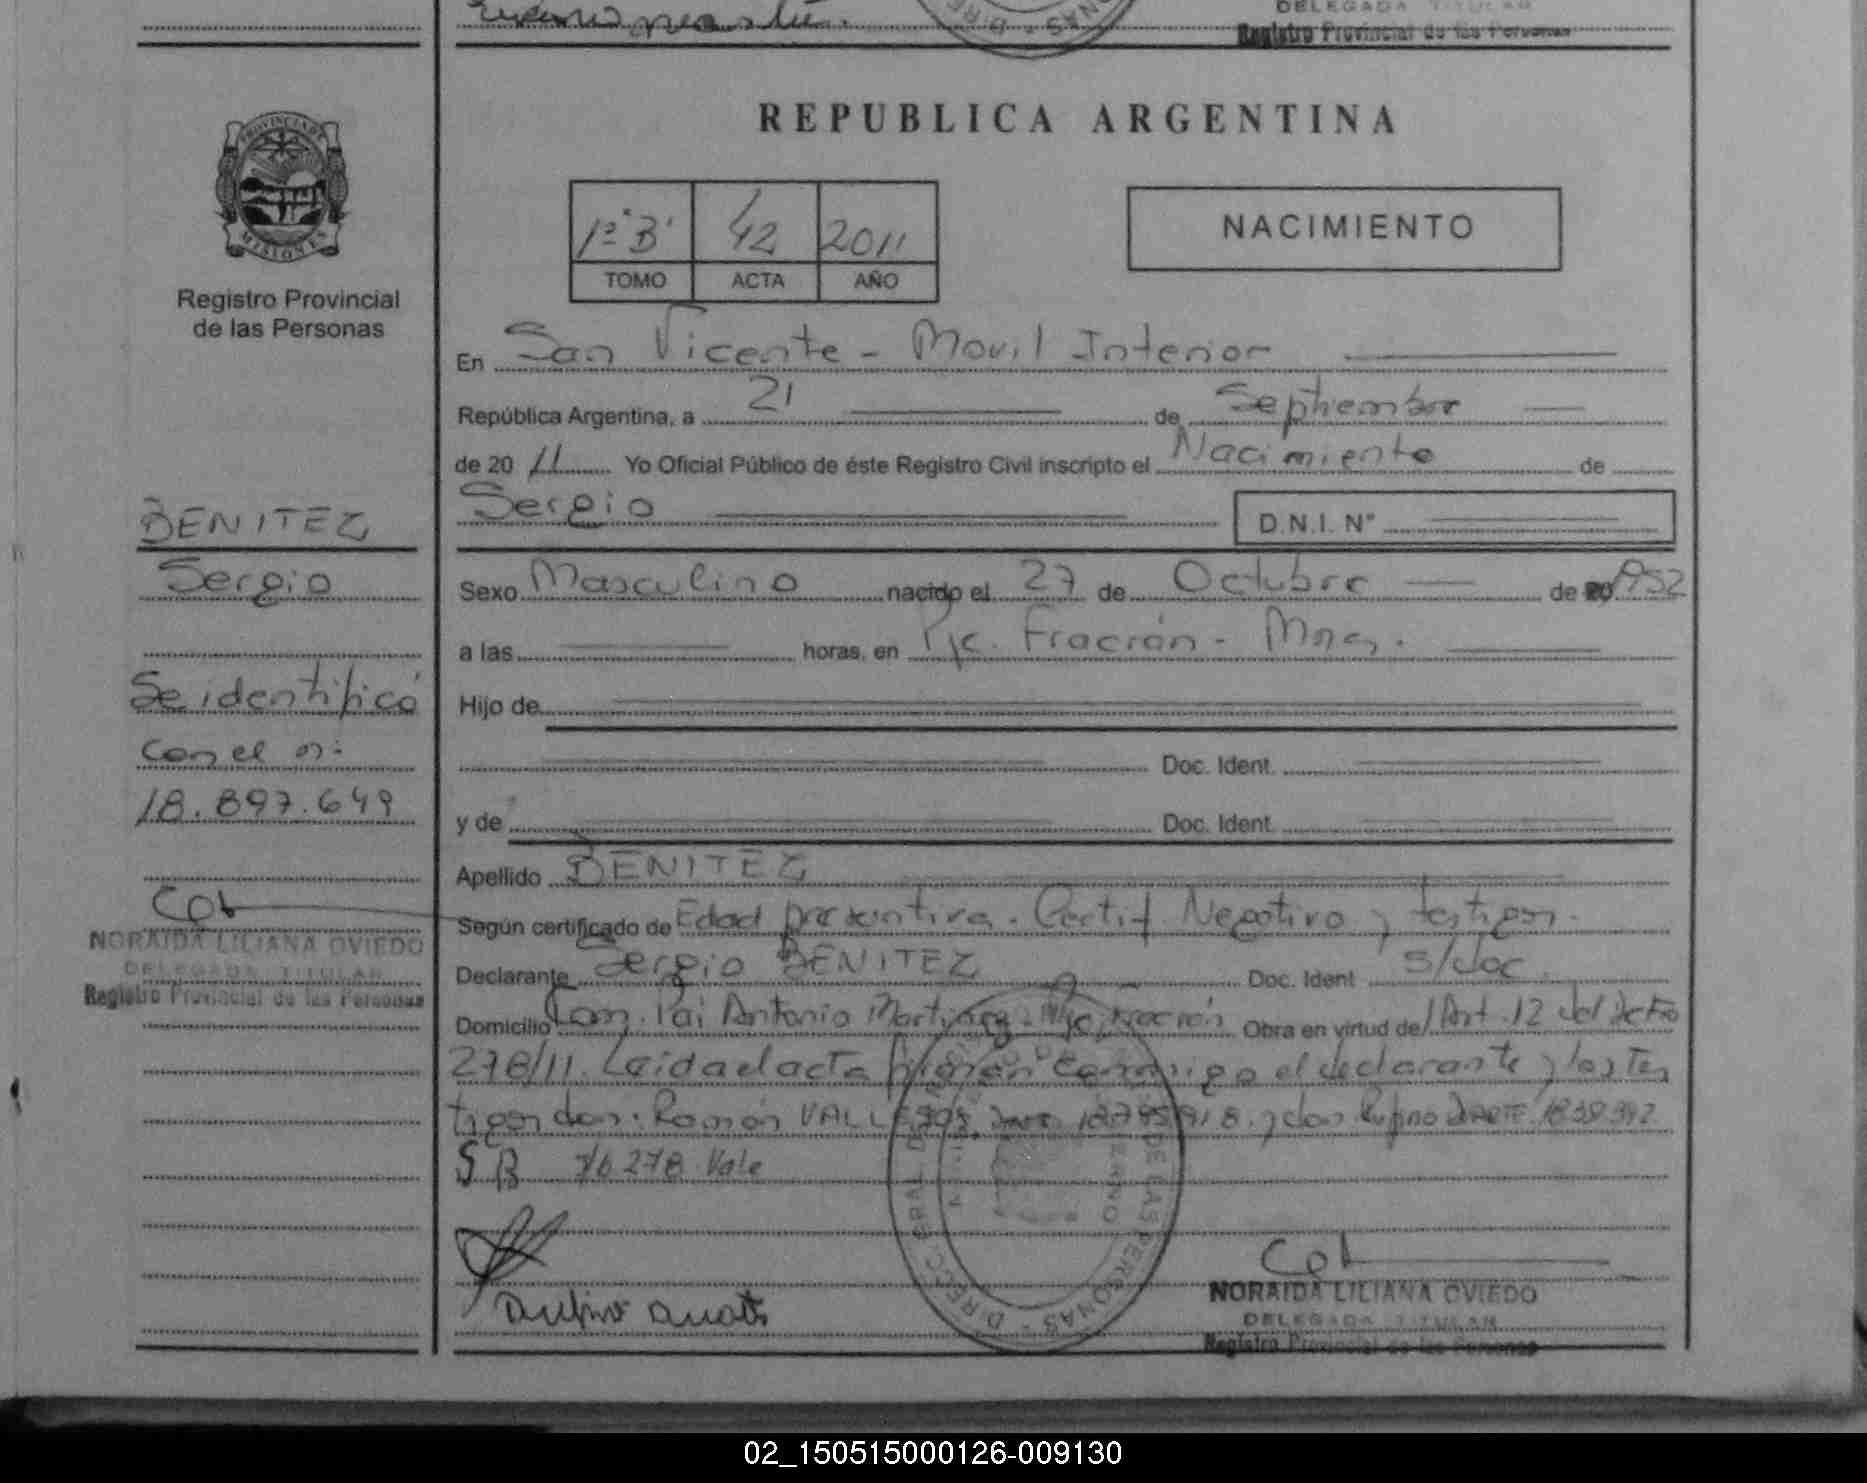 DELEGADA TITULAR
Registro Provincial de las Personas
PROVINCIA DE
MISIONES
Registro Provincial
de las Personas
REPUBLICA ARGENTINA
1º "B" 42 2011
TOMO ACTA AÑO
NACIMIENTO
En San Vicente - Movil Interior
República Argentina, a 21 de Septiembre
de 2011 Yo Oficial Público de éste Registro Civil inscripto el Nacimiento de
Sergio D.N.I. N°
Sexo Masculino nacido el 27 de Octubre de 1952
a las horas, en Pje. Fracrán - Mnes.
Hijo de
Doc. Ident.
y de Doc. Ident.
Apellido BENITEZ
Según certificado de Edad presuntiva. Certif. Negativo y testigos.
Declarante Sergio BENITEZ Doc. Ident. s/doc
Domicilio Com. Pai Antonio Martínez - Pje Fracrán Obra en virtud del Art. 12 del Dcto
278/11. Leida el acta firman conmigo el declarante y los Tes
tigos don: Ramón VALLEJOS, 18795918. y don Rufino DUARTE 18.39.392.
SB 278 Vale
BENITEZ
Sergio
Se identificó
con el n:
18.897.649
NORAIDA LILIANA OVIEDO
DELEGADA TITULAR
Registro Provincial de las Personas
DIRECC. GRAL. DE LAS PERSONAS
NORAIDA LILIANA OVIEDO
DELEGADA TITULAR
Registro Provincial de las Personas
02_150515000126-009130